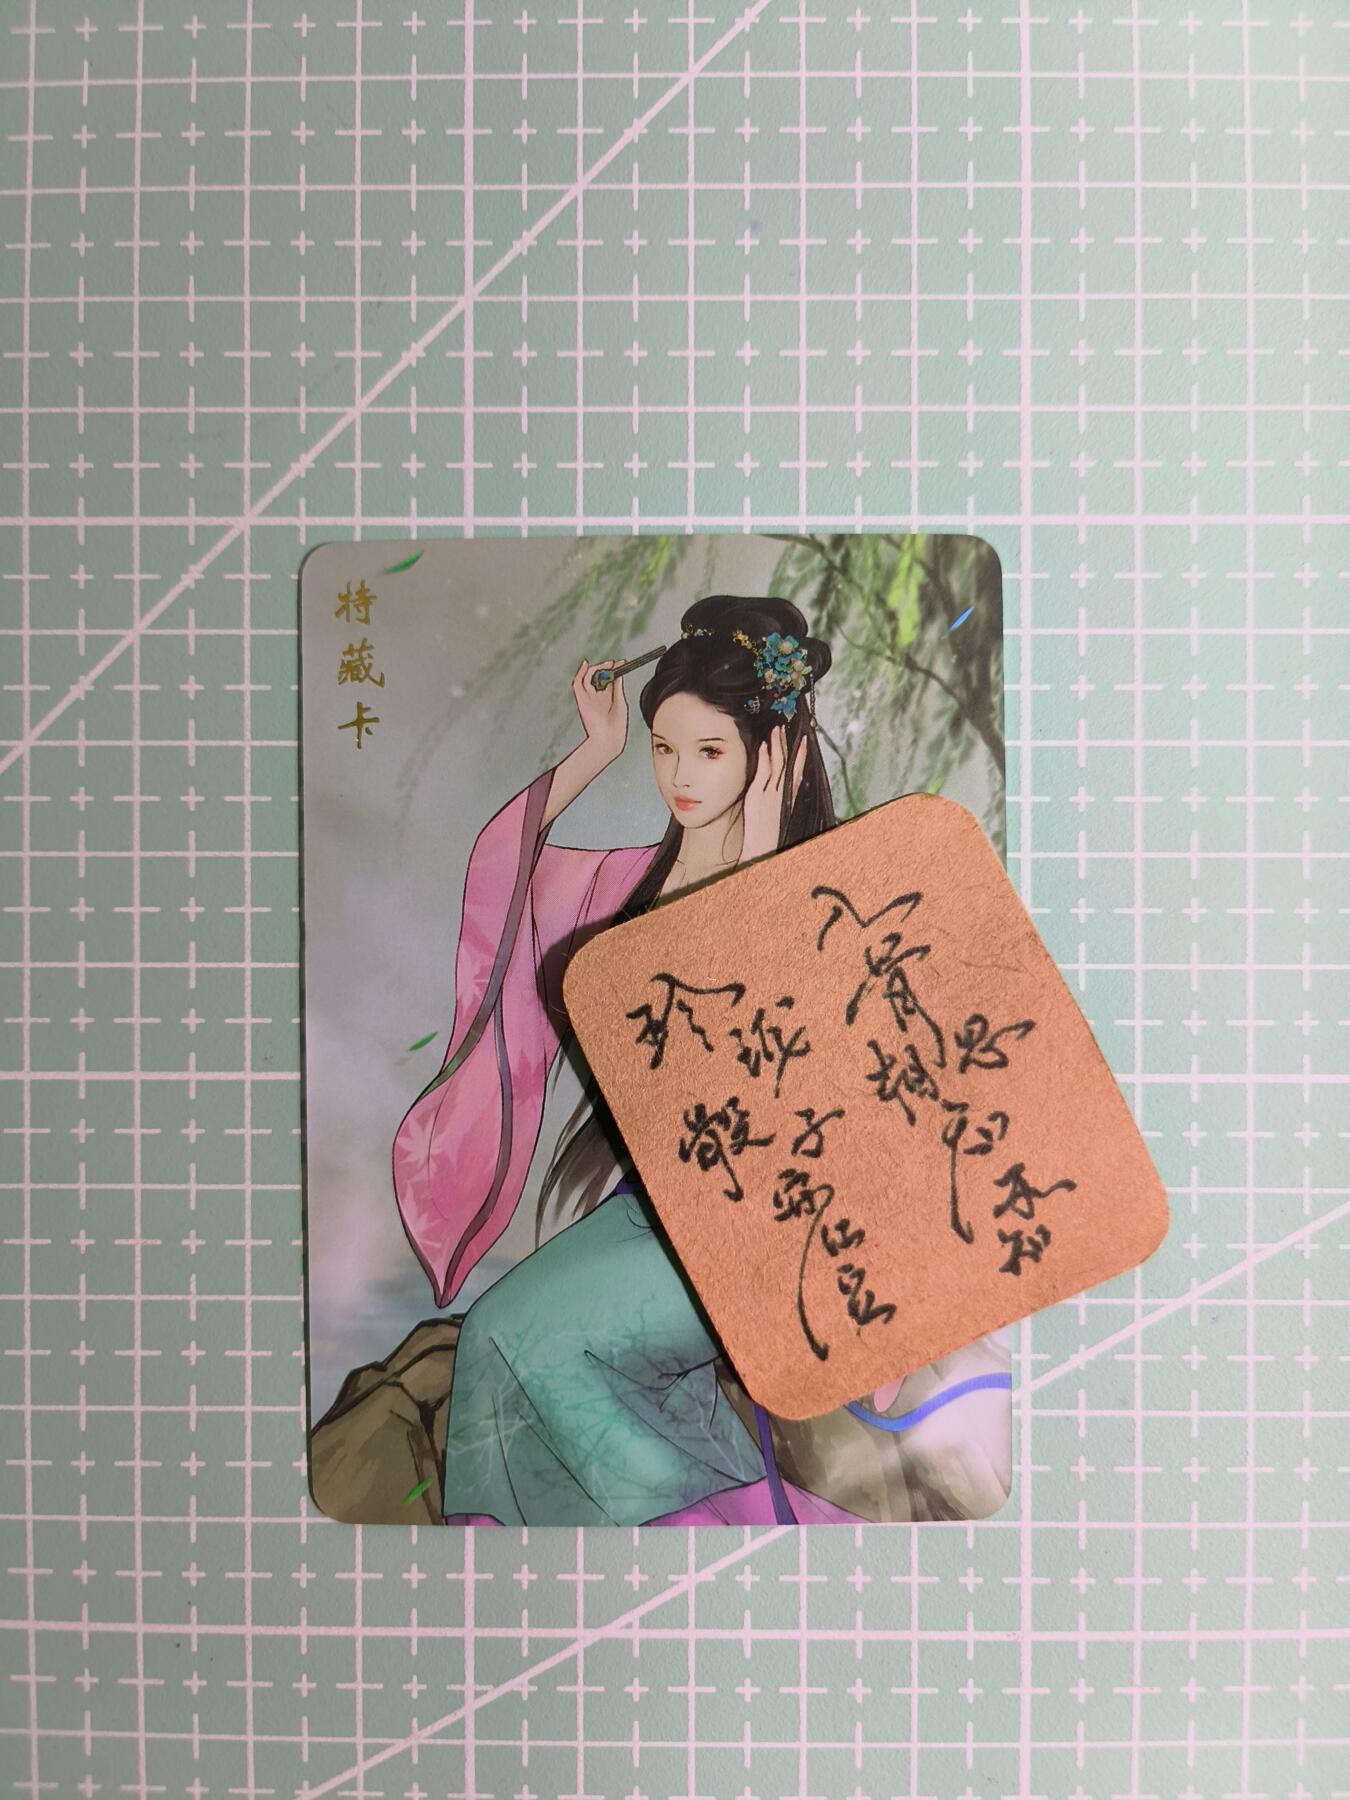 特藏卡
玲珑骰子安红豆
入骨相思知不知